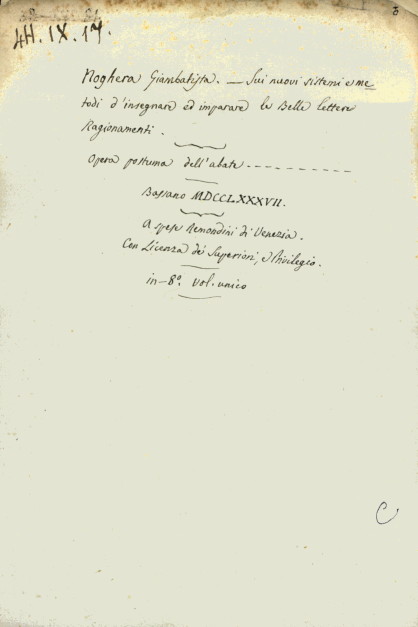 3
4H. IX. 17.
Noghera Giambatista. — Sui nuovi sistemi e me
todi d'insegnare ed imparare le Belle lettere
Ragionamenti.
Opera postuma dell'abate - - - - - - - - - - -
Bassano MDCCLXXXVII.
A spese Remondini di Venezia.
Con Licenza de' Superiori, e Privilegio.
in-8º. vol. unico
C